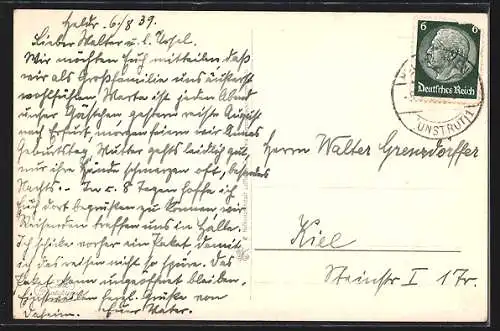 Heldr. 6/8 39.
Lieber Walter u. l. Ursel.
Wir möchten Euch mitteilen, daß
wir als Großfamilie uns äußerst
wohlfühlen. Marta ist jeden Abend
unser Gästchen, gestern reiste August
nach Erfurt, morgen feiern wir
Geburtstag. Mutter gehts leidlich gut,
nur ihre Hände schmerzen oft, besonders
Nachts. - In c. 8 Tagen hoffe ich
Euch dort begrüßen zu können, wir
Reisenden treffen uns in Halle.
Ich schicke vorher ein Paket damit
ich das reisen nicht so spüre. Das
Paket kann ungeöffnet bleiben.
Einstweilen herzl. Grüße von
daheim. Euer Vater.
6 6
Deutsches Reich
(UNSTRUT)
Herrn Walter Grenzdorffer
Kiel
Steinstr I 17r.